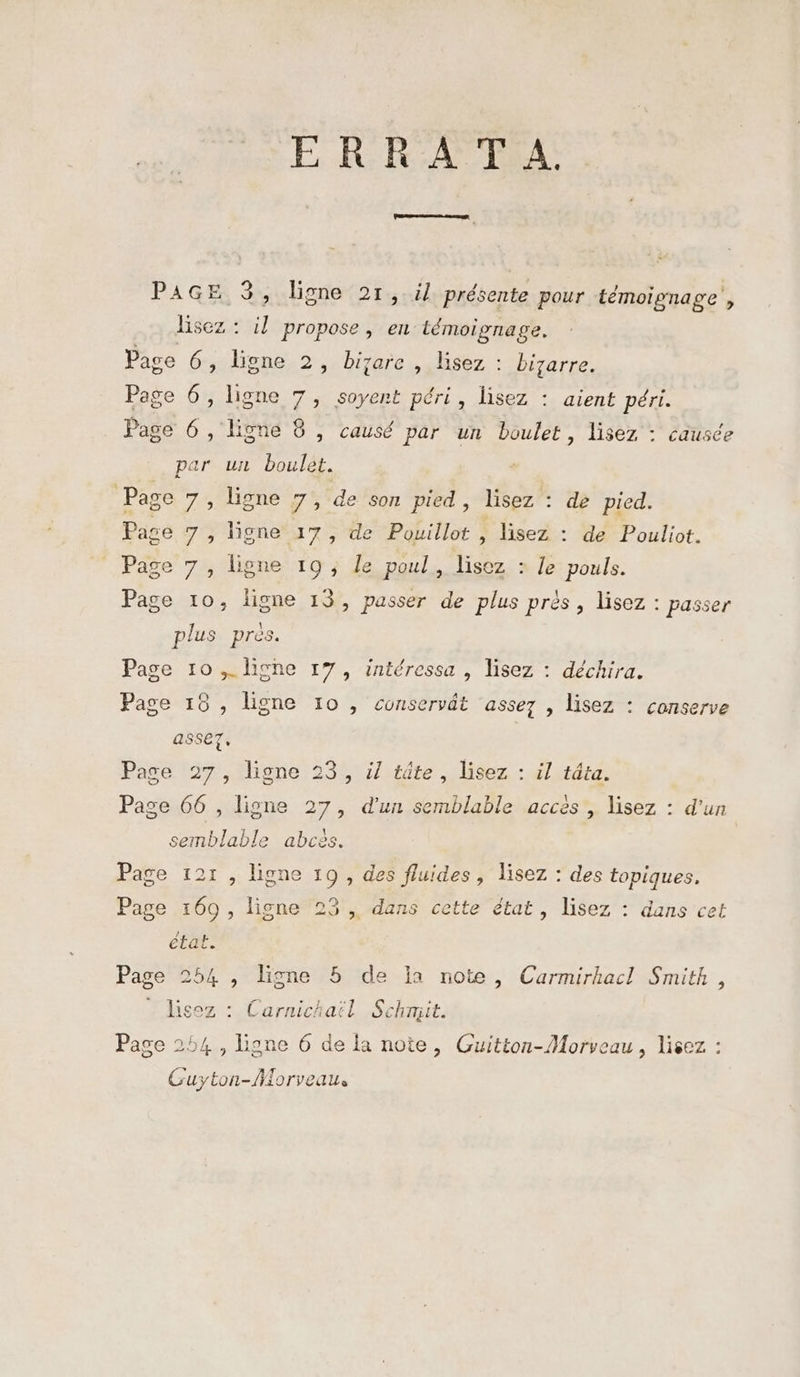 ERRATA.
PAGE 3, ligne 21, il présente pour témoignage,
lisez : il propose, en témoignage.
Page 6, ligne 2, bizare, lisez : bizarre.
Page 6, ligne 7, soyent péri, lisez : aient péri.
Page 6, ligne 8, causé par un boulet, lisez : causée
par un boulet.
Page 7, ligne 7, de son pied, lisez : de pied.
Page 7, ligne 17, de Pouillot, lisez : de Pouliot.
Page 7, ligne 19, le poul, lisez : le pouls.
Page 10, ligne 13, passer de plus près, lisez : passer
plus près.
Page 10, ligne 17, intéressa, lisez : déchira.
Page 18, ligne 10, conservât assez, lisez : conserve
assez.
Page 27, ligne 23, il tâte, lisez : il tâta.
Page 66, ligne 27, d'un semblable accès, lisez : d'un
semblable abcès.
Page 121, ligne 19, des fluides, lisez : des topiques.
Page 169, ligne 23, dans cette état, lisez : dans cet
état.
Page 254, ligne 5 de la note, Carmirhacl Smith,
lisez : Carnichaël Schmit.
Page 254, ligne 6 de la note, Guitton-Morveau, lisez :
Guyton-Morveau.